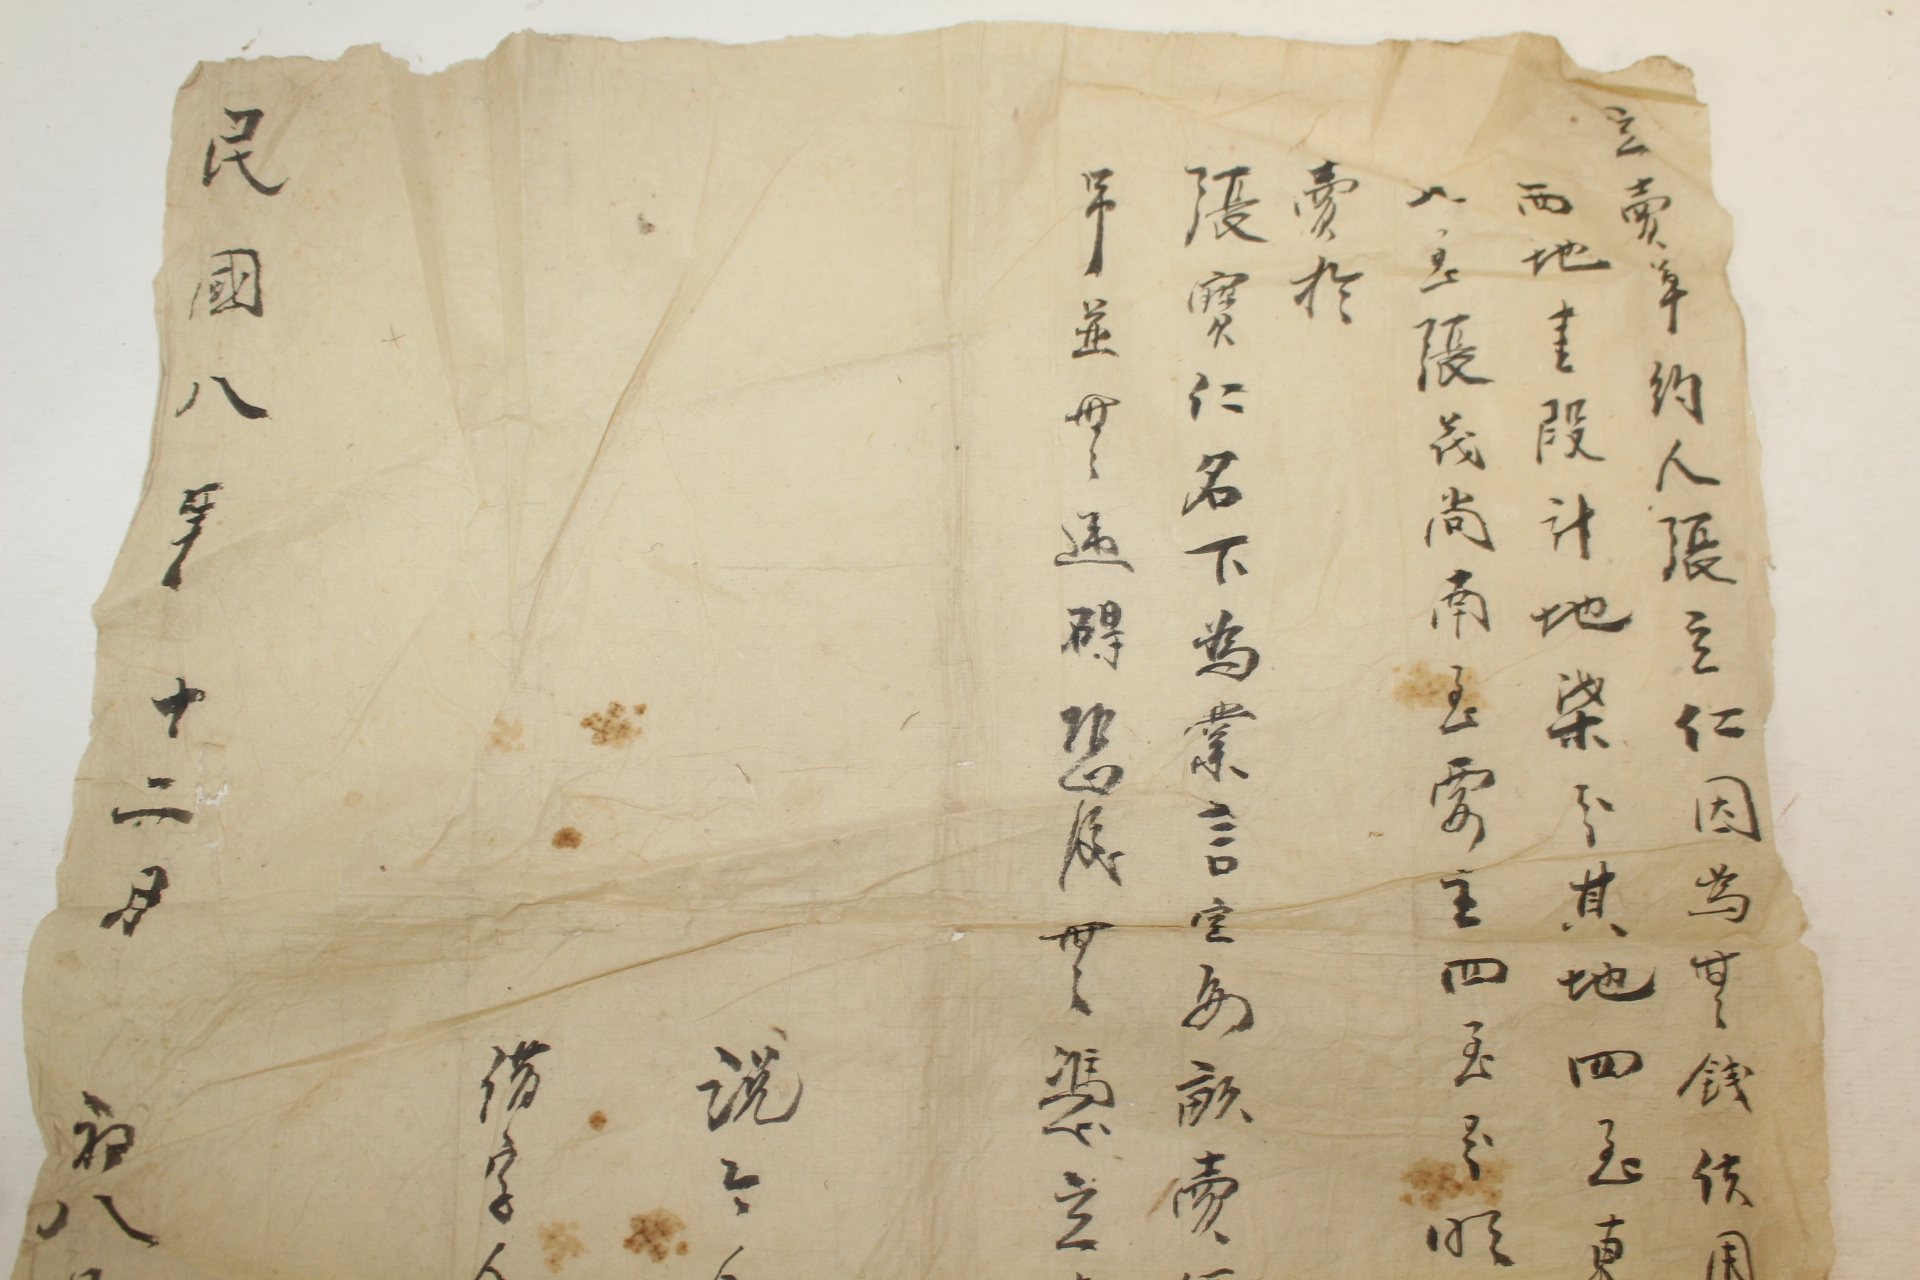 立賣草約人張立仁因為無錢使用
西地壹段計地柒分其地四至東
北至張茂尚南至賣主四至分明
賣於
張寶仁名下為業言定每畝賣
吊並無違碍恐後無憑立
說合人
借字人
民國八年十二月初八日